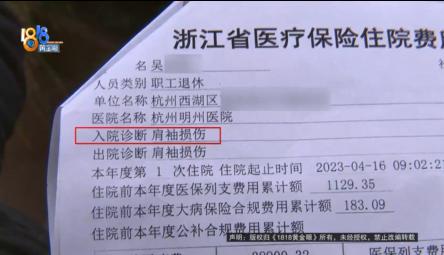 1818
黄金眼
浙江省医疗保险住院费
名 吴
人员类别 职工退休
单位名称 杭州西湖区
医院名称 杭州明州医院
入院诊断 肩袖损伤
出院诊断 肩袖损伤
本年度第 1 次住院 住院起止时间 2023-04-16 09:02:2
住院前本年度医保列支费用累计额 1129.35
住院前本年度大病保险合规费用累计额 183.09
住院前本年度公补合规费用累计额
声明：版权归《1818黄金眼》所有，未经授权，禁止改编转载